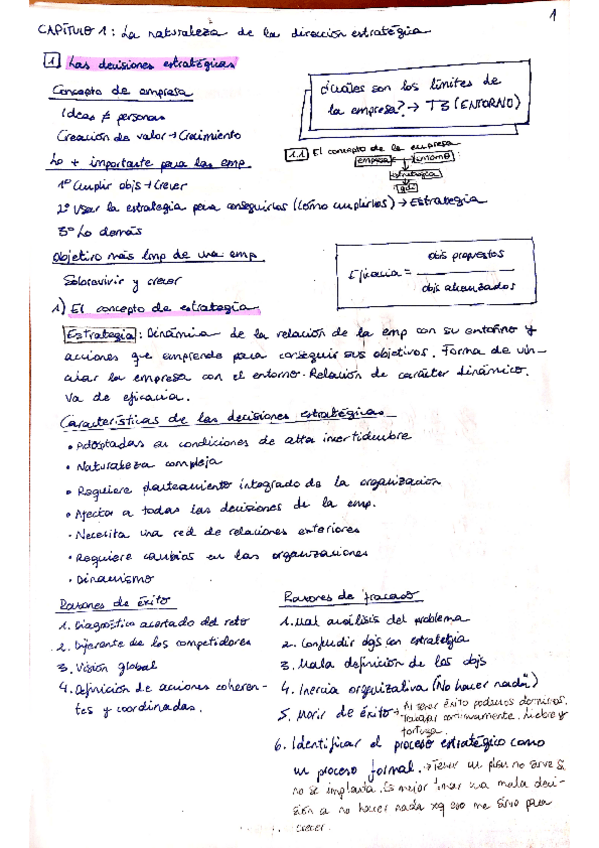 1
CAPÍTULO 1: La naturaleza de la dirección estratégica
1 Las decisiones estratégicas
Concepto de empresa
Ideas ≠ personas
Creación de valor → Crecimiento
¿Cuáles son los límites de
la empresa? → T3 (ENTORNO)
Lo + importante para las emp
1º Cumplir objs → Crecer
2º Usar la estrategia para conseguirlos (cómo cumplirlos) → Estrategia
3º Lo demás
1.1 El concepto de la empresa
empresa entorno
estrategia
Objetivo más imp de una emp
Sobrevivir y crecer
Eficacia = objs propuestos
objs alcanzados
1) El concepto de estrategia
Estrategia: Dinámica de la relación de la emp con su entorno y
acciones que emprende para conseguir sus objetivos. Forma de vin-
cular la empresa con el entorno. Relación de carácter dinámico.
Va de eficacia.
Características de las decisiones estratégicas
• Adoptadas en condiciones de alta incertidumbre
• Naturaleza compleja
• Requiere planteamiento integrado de la organización
• Afectan a todas las decisiones de la emp.
• Necesita una red de relaciones exteriores
• Requiere cambios en las organizaciones
• Dinamismo
Razones de éxito
1. Diagnóstico acertado del reto
2. Diferente de los competidores
3. Visión global
4. Definición de acciones coheren-
tes y coordinadas.
Razones de fracaso
1. Mal análisis del problema
2. Confundir objs con estrategia
3. Mala definición de los objs
4. Inercia organizativa (No hacer nada)
5. Morir de éxito → Al tener éxito podemos dormirnos.
Trabajar continuamente. Liebre y
tortuga.
6. Identificar el proceso estratégico como
un proceso formal. → Tener un plan no sirve si
no se implanta. Es mejor tomar una mala deci-
sión a no hacer nada xq eso me sirve para
crecer.